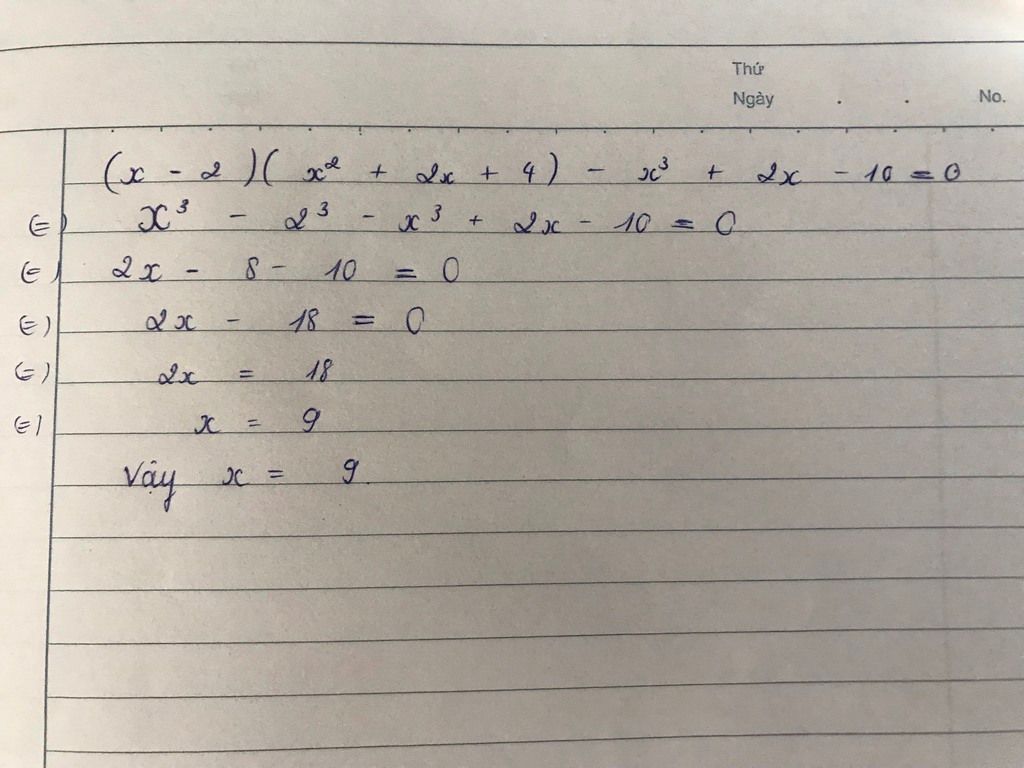 Thứ
Ngày . . No.
(x - 2)(x² + 2x + 4) - x³ + 2x - 10 = 0
(=) x³ - 2³ - x³ + 2x - 10 = 0
(=) 2x - 8 - 10 = 0
(=) 2x - 18 = 0
(=) 2x = 18
(=) x = 9
Vậy x = 9.